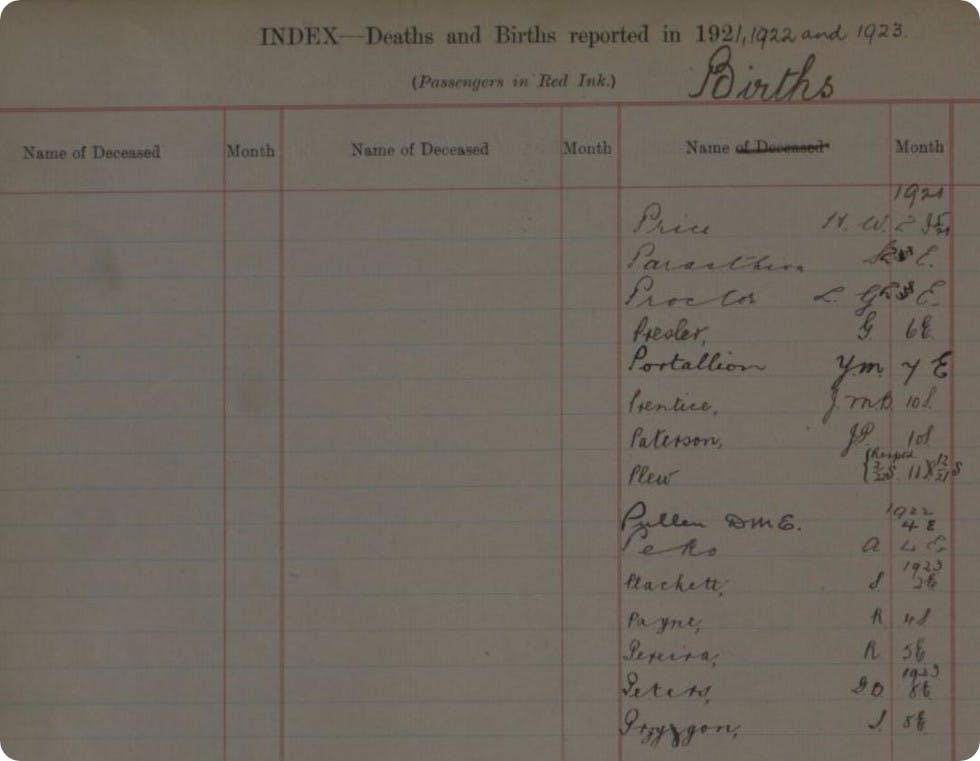 INDEX—Deaths and Births reported in 1921, 1922 and 1923.
(Passengers in Red Ink.)
Births
Name of Deceased Month Name of Deceased Month Name of Deceased Month
1921
Price H. W.
E.
Proctor L. G. E.
Presler, G. 6E
Portallion Y.M. 7 E
Prentice, J M B 10S.
Paterson, J P. 10S
Plew
1922
Pullen D M E. 4 E
Peko A 4 E.
1923
Plackett, S. 2E
Payne, R 4S
Pereira, R 5E
1923
Peters, D. O 8E
Przyzgon, J. 8E